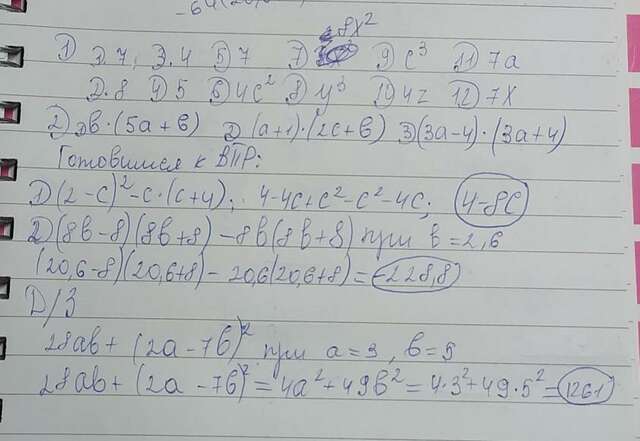 8x²
1) 3.7, 3.4 5) 7 7) 9) c³ 11) 7a
2.8 4) 5 6) 4c² 8) y³ 10) 4z 12) 7x
2) 1) b·(5a+b) 2) (a+1)·(2c+b) 3) (3a-4)·(3a+4)
Готовимся к ВПР:
1) (2-c)²-c·(c+4); 4-4c+c²-c²-4c; 4-8c
2) (8b-8)(8b+8)-8b(8b+8) при b=2,6
(20,6-8)(20,6+8)-20,6(20,6+8)=-228,8
Д/З
28ab+(2a-7b)² при a=3, b=5
28ab+(2a-7b)²=4a²+49b²=4·3²+49·5²=1261